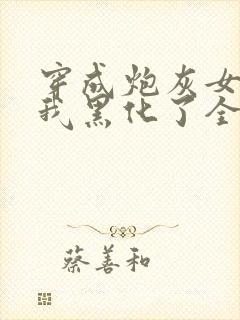 穿成炮灰女
我黑化了全
蔡善和